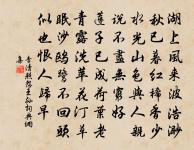 湖上風來波浩渺
秋已暮紅稀香少
水光山色與人親
說不盡無窮好
蓮子已成荷葉老
青露洗蘋花汀草
眠沙鷗鷺不回頭
似也恨人歸早
李清照怨王孫詞